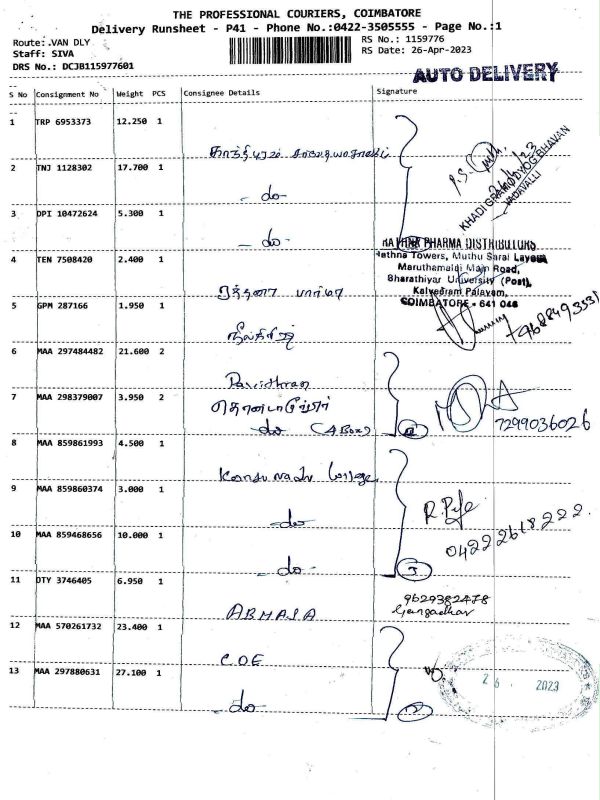 THE PROFESSIONAL COURIERS, COIMBATORE
Delivery Runsheet - P41 - Phone No.:0422-3505555 - Page No.:1
Route: VAN DLY
RS No.: 1159776
Staff: SIVA
RS Date: 26-Apr-2023
DRS No.: DCJB115977601
AUTO DELIVERY
S No Consignment No Weight PCS Consignee Details Signature
1 TRP 6953373 12.250 1
2 TNJ 1128302 17.700 1
- do -
KHADI GRAMODYOG BHAVAN
VADAVALLI
3 DPI 10472624 5.300 1
- do -
RATHNA PHARMA DISTRIBUTORS
Rathna Towers, Muthu Sarai Layout
Maruthamalai Main Road,
Bharathiyar University (Post),
Kalveeram Palayam,
COIMBATORE - 641 046
4 TEN 7508420 2.400 1
5 GPM 287166 1.950 1
6 MAA 297484482 21.600 2
Pavithram
7 MAA 298379007 3.950 2
- do - (4 Box)
7299036026
8 MAA 859861993 4.500 1
Kongunadu College
9 MAA 859860374 3.000 1
- do -
04222618222
10 MAA 859468656 10.000 1
- do -
11 DTY 3746405 6.950 1
ABHASA
9629382478
Gangadhar
12 MAA 570261732 23.400 1
C.O.E
13 MAA 297880631 27.100 1
- do -
26 2023